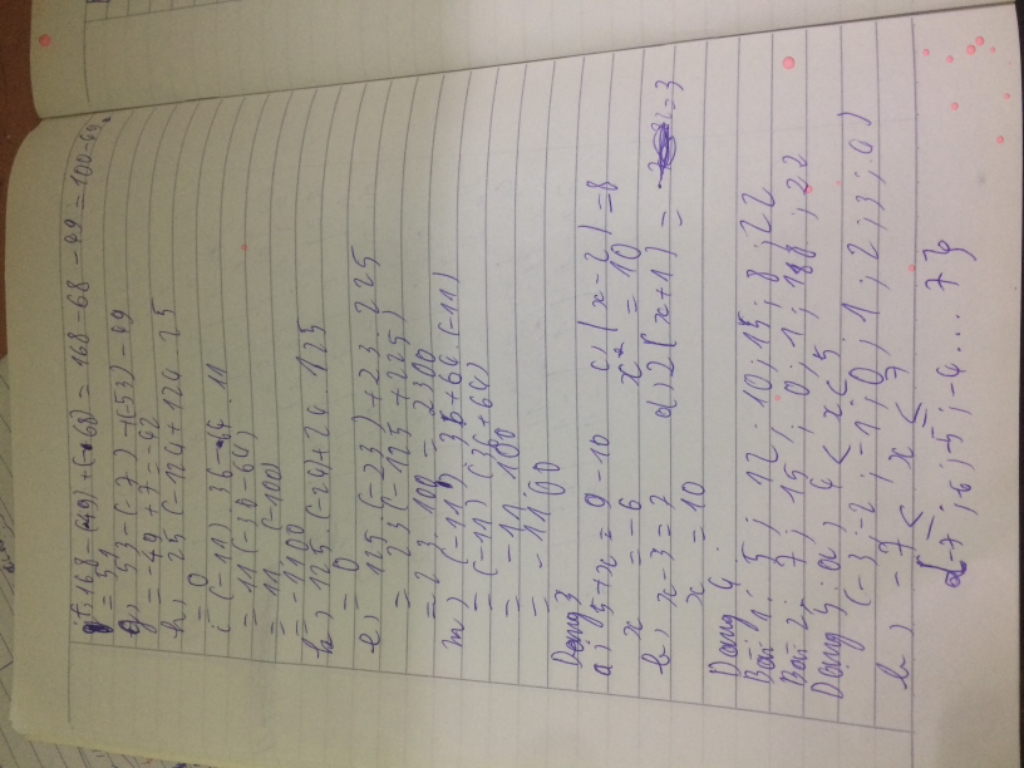 f, 168 - (49) + (-68) = 168 - 68 - 49 = 100 - 49
= 51
g, 53 - (-7) + (-53) - 49
= -49 + 7 = -42
h, 25 (-124 + 124 . 25
= 0
i (-11) . 36 - 64 . 11
= 11 (-36 - 64)
= 11 (-100
= -1100
k, 125 . (-24) + 24 . 125
= 0
l, 125 (-23) + 23 . 225
= 23 (-125 + 225)
= 23 . 100 = 2300
m, (-11) . 36 + 64 . (-11)
= (-11) (36 + 64)
= -11 . 100
= -1100
Dạng 3
a, 5 + x = 9 - 10 c, (x - 2) = 8
x = -6 x = 10
b, x - 3 = 7 d, 2 (x + 1) = 3
x = 10
Dạng 4
Bài 1: 5 ; 12 ; 10 ; 15 ; 8 ; 22
Bài 2: 7 ; 15 ; 0 ; 1 ; 188 ; 22
Dạng 5 : a, 4 < x < 5
(-3 ; -2 ; -1 ; 0 ; 1 ; 2 ; 3 ; 0)
b, -7 < x ≤ 7
{-7 ; 6 ; 5 ; -4 ... 7}